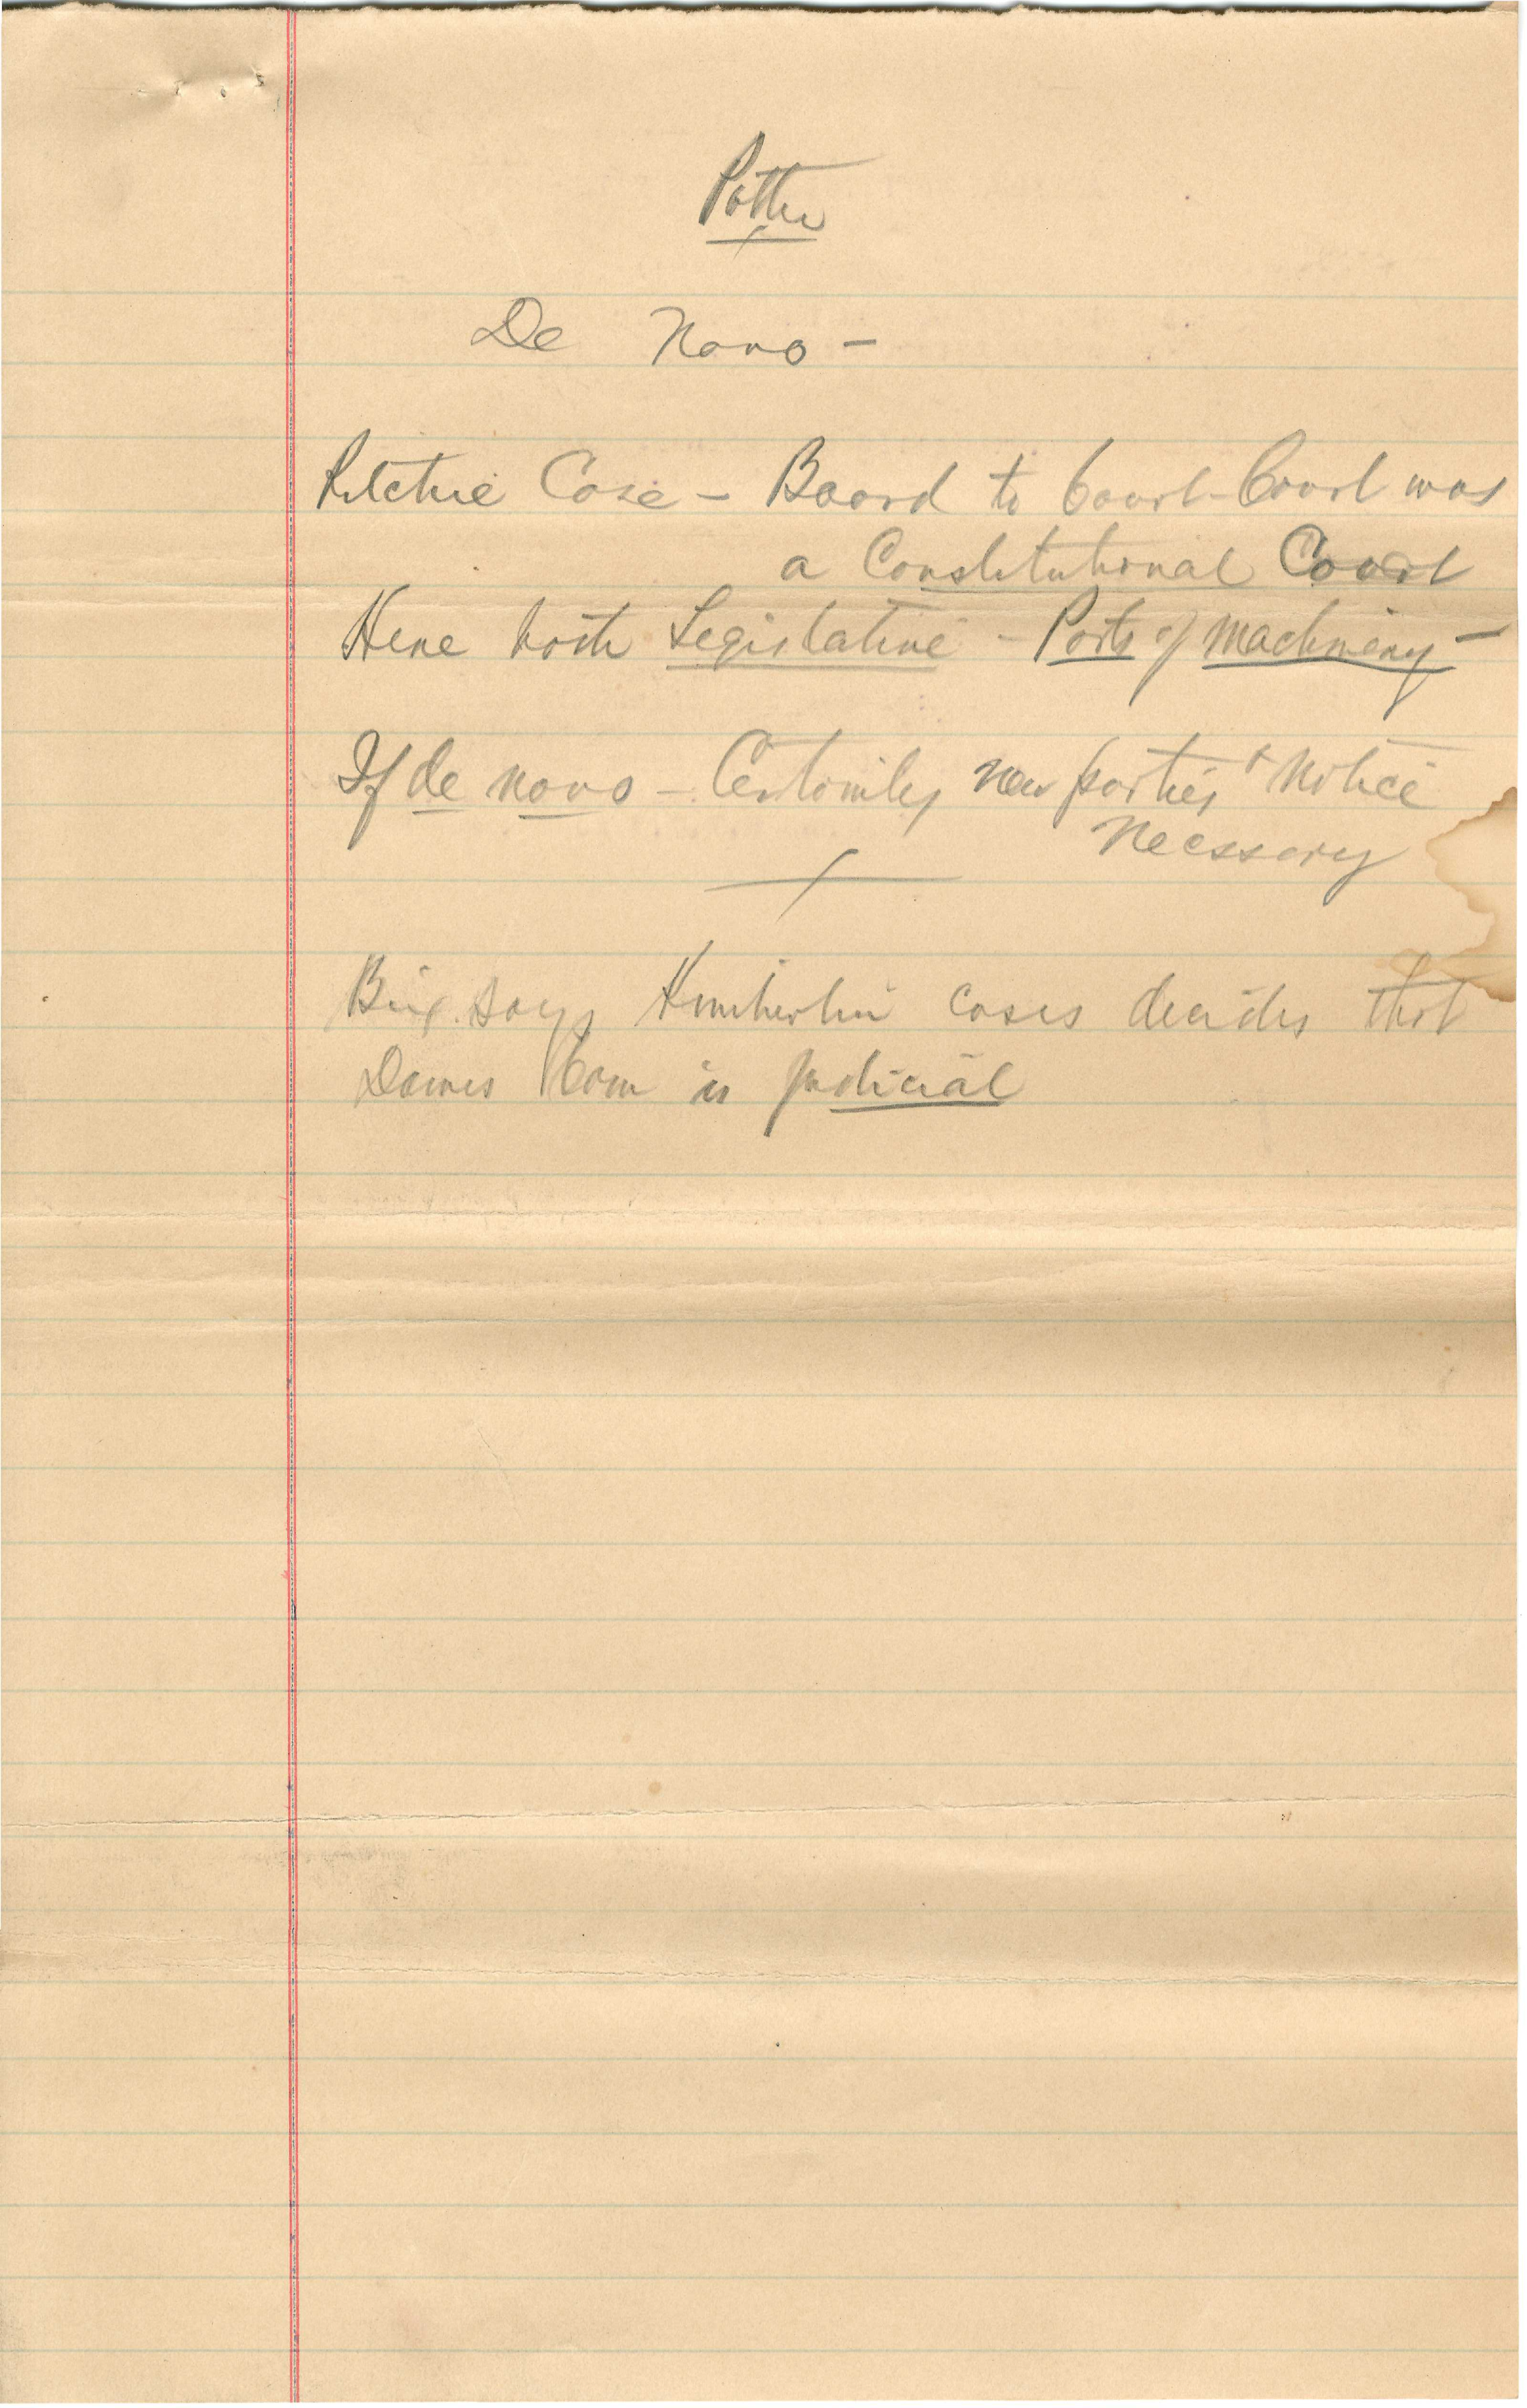 Potter
De Novo -
Ritchie Case - Board to Court - Court was
a Constitutional Court
Here both Legislative - Parts of machinery -
If de novo - Certainly new parties + notice
Necessary
says Kimberlin cases decides that
Dawes Com is judicial